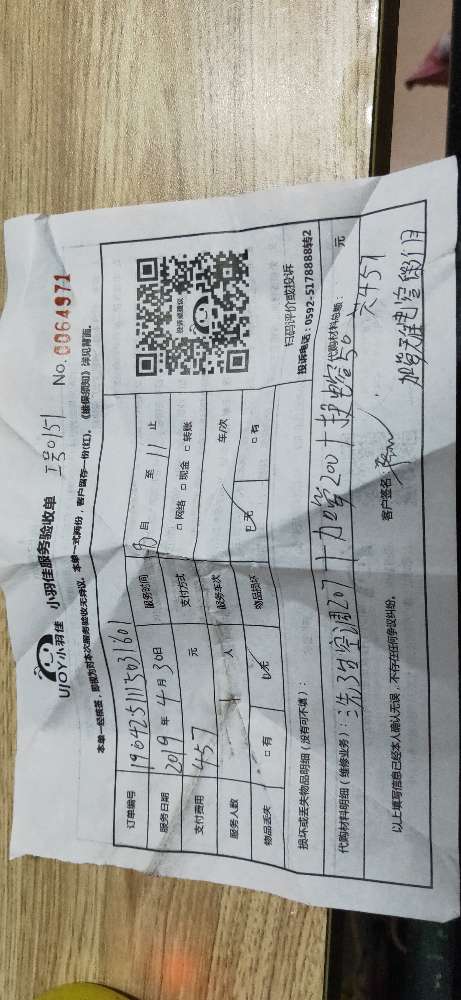 UJOY小羽佳 小羽佳服务验收单 工号0151 No. 0064971
本单一经核签，即视为对本次服务验收无异议。本单一式两份，客户留存一份(红)。《维保须知》详见背面。
订单编号 1904251113031601
服务日期 2019 年 4 月 30 日 服务时间 8 自 至 11 止
支付费用 457 元 支付方式 □ 网络 □ 现金 □ 转账
服务人数 1 人 服务车次 车/次
物品丢失 □ 有 □ 无 物品损坏 □ 无 □ 有
投诉或建议
扫码评价或投诉
投诉电话：0592-5178888转2
损坏或丢失物品明细（没有可不填）：
代购材料明细（维修业务）：洗3台空调207+加管200+换电容50 代购材料总额： 元
共457
以上填写信息已经本人确认无误，不存在任何争议纠纷。 客户签名
加管无保电容保1个月